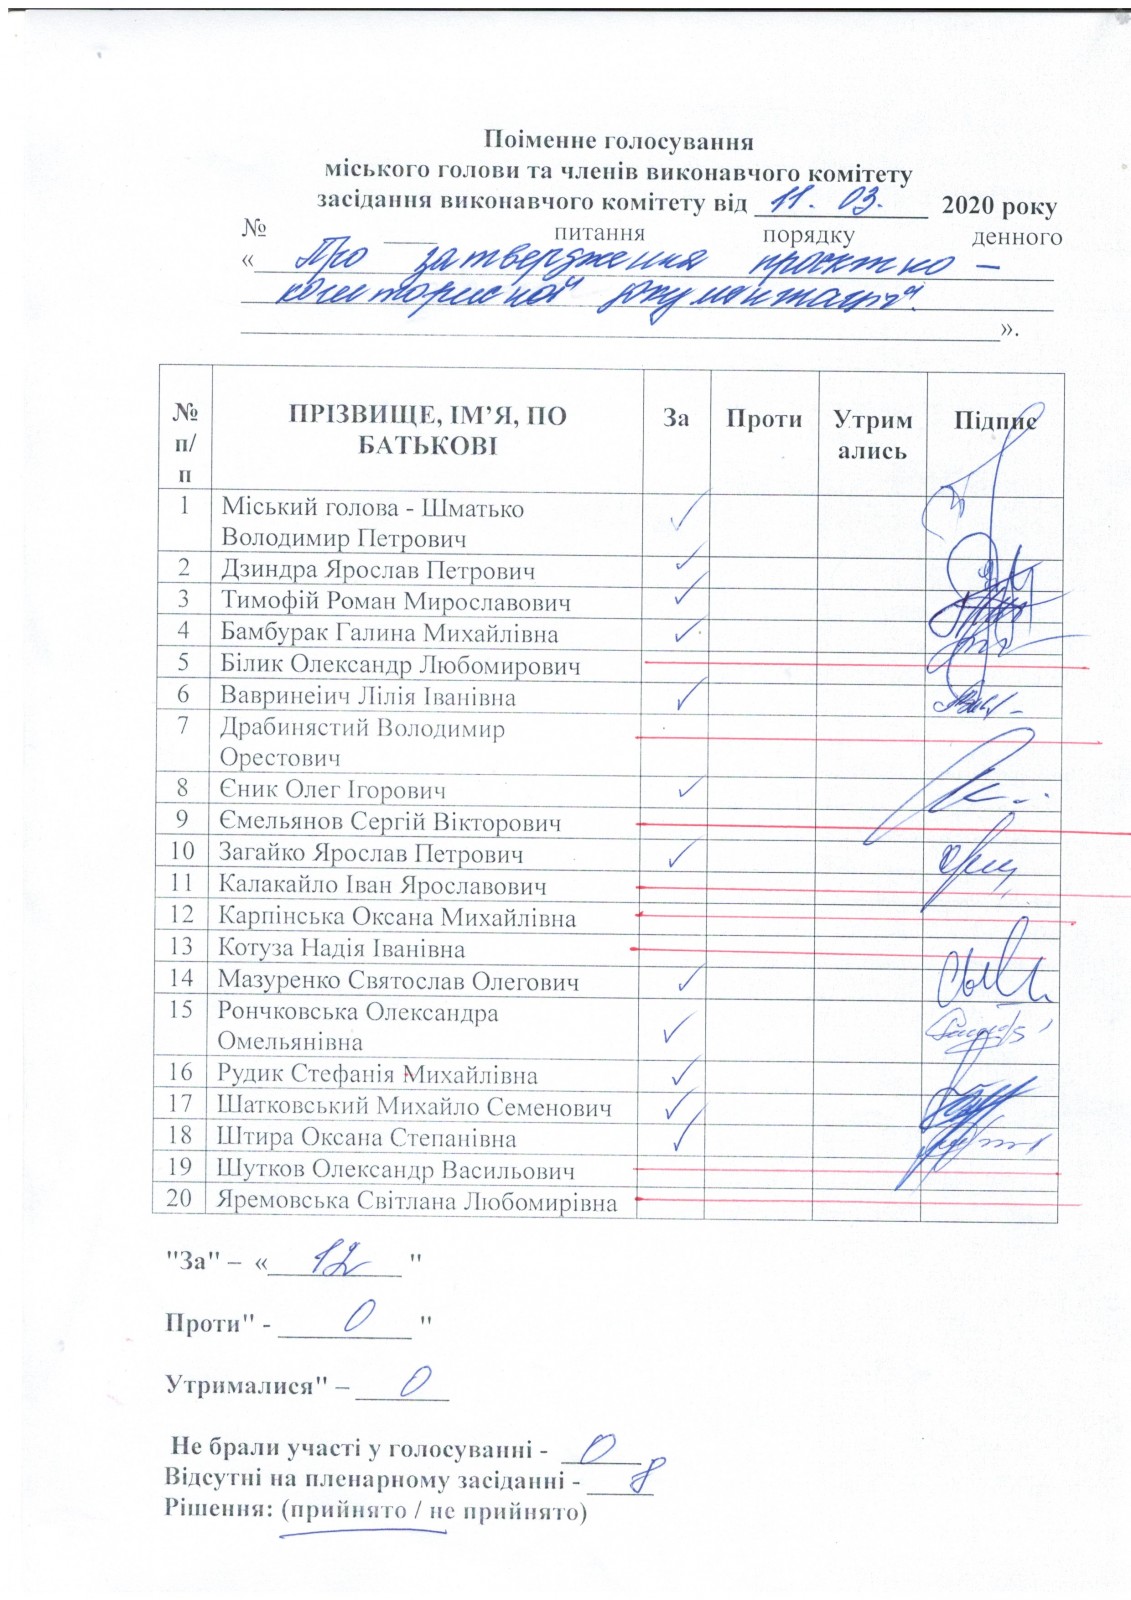 Поіменне голосування
міського голови та членів виконавчого комітету
засідання виконавчого комітету від 11. 03. 2020 року
№ ____ питання порядку денного
« Про затвердження проєктно –
кошторисної документації".
».
№ п/п ПРІЗВИЩЕ, ІМ’Я, ПО БАТЬКОВІ За Проти Утрим ались Підпис
1 Міський голова - Шматько
Володимир Петрович
2 Дзиндра Ярослав Петрович
3 Тимофій Роман Мирославович
4 Бамбурак Галина Михайлівна
5 Білик Олександр Любомирович
6 Вавринеіич Лілія Іванівна
7 Драбинястий Володимир
Орестович
8 Єник Олег Ігорович
9 Ємельянов Сергій Вікторович
10 Загайко Ярослав Петрович
11 Калакайло Іван Ярославович
12 Карпінська Оксана Михайлівна
13 Котуза Надія Іванівна
14 Мазуренко Святослав Олегович
15 Рончковська Олександра
Омельянівна
16 Рудик Стефанія Михайлівна
17 Шатковський Михайло Семенович
18 Штира Оксана Степанівна
19 Шутков Олександр Васильович
20 Яремовська Світлана Любомирівна
"За" – « 12 "
Проти" - 0 "
Утрималися" – 0
Не брали участі у голосуванні - 0
Відсутні на пленарному засіданні - 8
Рішення: (прийнято / не прийнято)